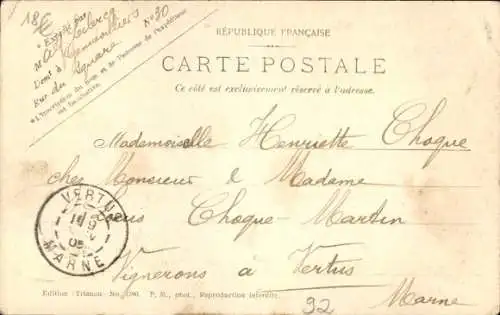 18€
* Expédié par
M A. Leclercq N° 30
Demt à
Rue du Square
* L'inscription du nom et de l'adresse de l'expéditeur
est facultative.
RÉPUBLIQUE FRANÇAISE
CARTE POSTALE
Ce côté est exclusivement réservé à l'adresse.
Mademoiselle Henriette Choque
chez Monsieur & Madame
Choque-Martin
Vignerons à Vertus
Marne
VERTUS
MARNE
Edition "Trianon" P. M., phot., Reproduction interdite.
92